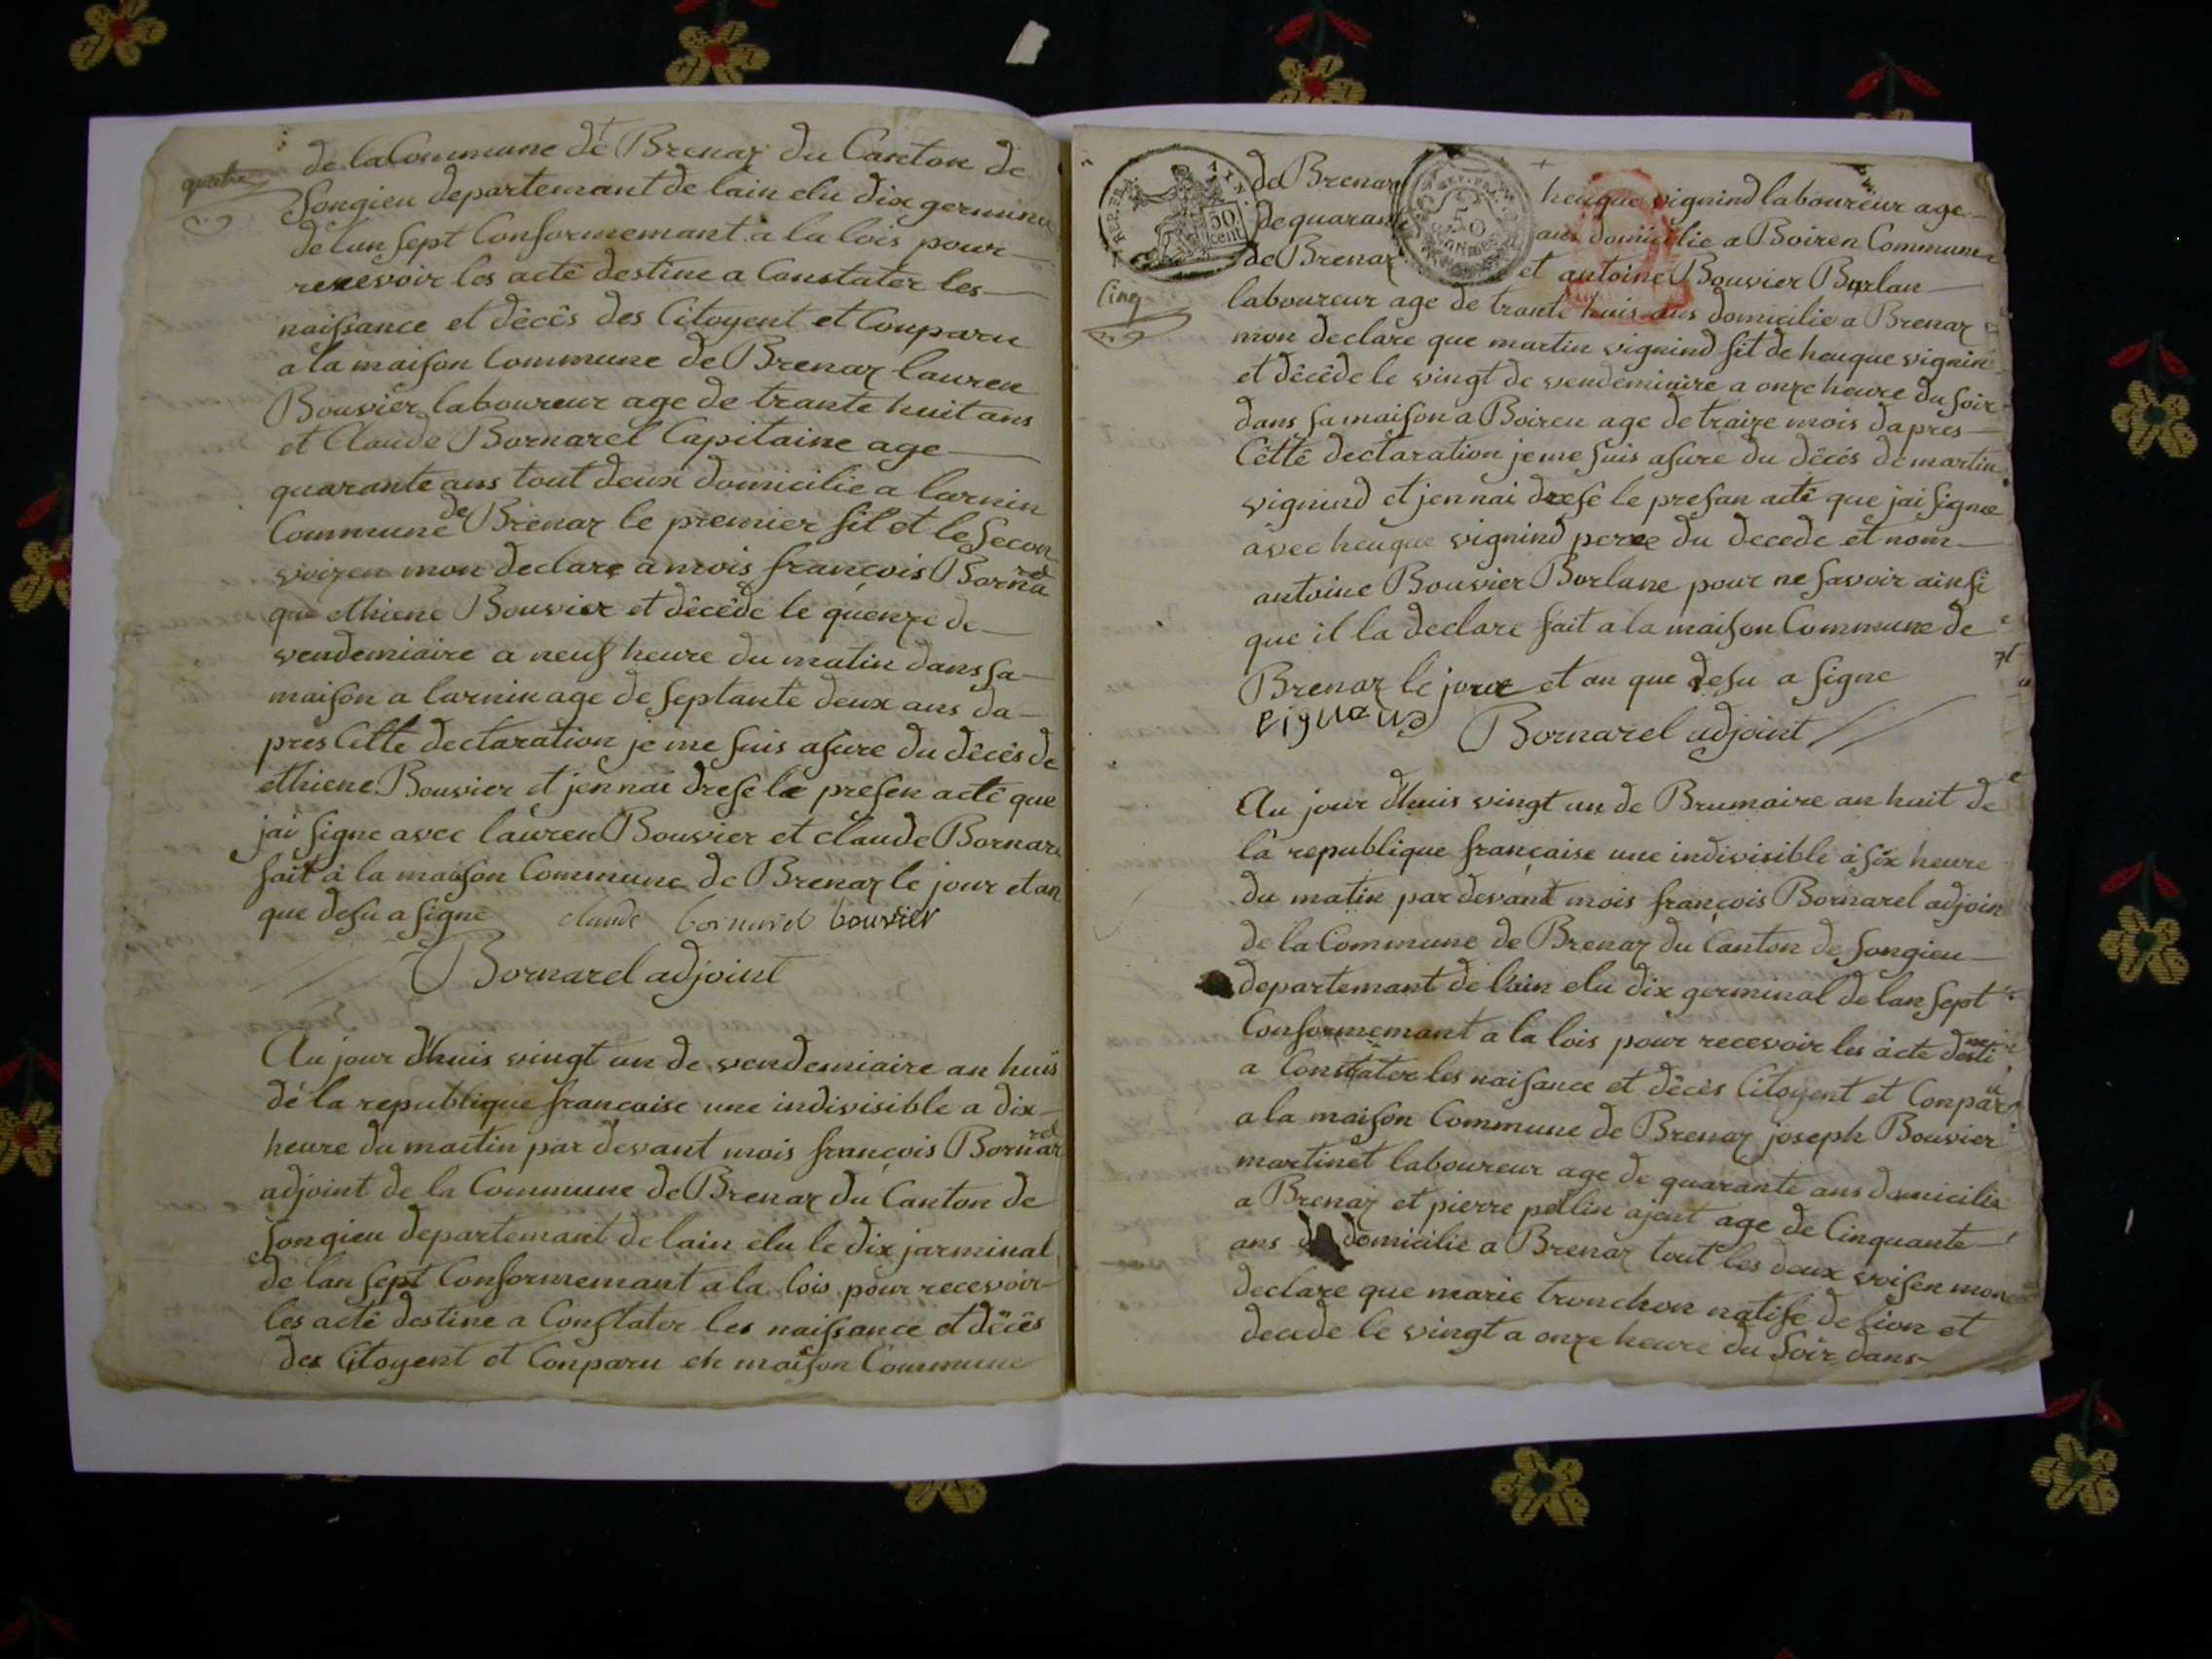 quatre
de la Commune de Brenaz du Canton de
Songieu departemant de lain elu dix germinal
de lan sept Conformemant a la lois pour
recevoir les acte destine a Constater les
naissance et décès des Citoyent et Conparu
a la maison Commune de Brenaz lauren
Bouvier laboureur age de trante huit ans
et Claude Bornarel Capitaine age
quarante ans tout deux domicilie a larnin
Commune de Brenaz le premier fil et le secon
voizen mon declare a mois françois Bornarel
que ethiene Bouvier et décéde le quenze de
vendemiaire a neuf heure du matin dans sa
maison a larnin age de septante deux ans da
pres Cette declaration je me suis asure du décès de
ethiene Bouvier et jennai dresé le presen acte que
jai signe avec lauren Bouvier et claude Bornare
fait à la maison Commune de Brenaz le jour et an
que desu a signe claude bornarel bouvier
Bornarel adjoint
Au jour dhuis vingt un de vendemiaire an huis
de la republique francaise une indivisible a dix
heure du maitin par devant mois françois Bornarel
adjoint de la Commune de Brenaz du Canton de
Songieu departemant de lain elu le dix jarminal
de lan sept Conformemant a la lois pour recevoir
les acte destine a Constater les naissance et décès
des Citoyent et Conparu en maison Commune
REP. FRA. 50 cent
REP. FRA. 50
Cinq
de Brenaz heugue vignind laboureur age
de quarante ans domicilie a Boiren Commune
de Brenaz et antoine Bouvier Burlan
laboureur age de trante huis ans domicilie a Brenaz
mon declare que martin vignind fit de heugue vignin
et décéde le vingt de vendemiaire a onze heure du soir
dans sa maison a Boiren age de traize mois dapres
Cette declaration je me suis asure du décés de martin
vignind et jennai drese le presan acte que jai signe
avec heugue vignind pere du decede et nom
antoine Bouvier Borlane pour ne savoir ainsi
que il la declare fait a la maison Commune de
Brenaz le jour et an que desu a signe
Bornarel adjoint
Au jour dhuis vingt un de Brumaire an huit de
la republique française une indivisible à six heure
du matin par devant mois françois Bornarel adjoin
de la Commune de Brenaz du Canton de Songieu
departemant de lain elu dix germinal de lan sept
Conformemant a la lois pour recevoir les acte destine
a Constater les naisance et décès Citoyent et Conparu
a la maison Commune de Brenaz joseph Bouvier
martinet laboureur age de quarante ans domicilie
a Brenaz et pierre pellin ajent age de Cinquante
ans domicilie a Brenaz tout les deux voisen mon
declare que marie tronchon natife de lion et
decede le vingt a onze heure du soir dans